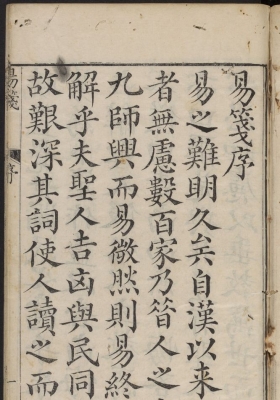 易箋序
易之難明久矣自漢以來
者無慮數百家乃㫺人之
九師興而易微然則易終
解乎夫聖人吉凶與民同
故艱深其詞使人讀之而
易箋
序